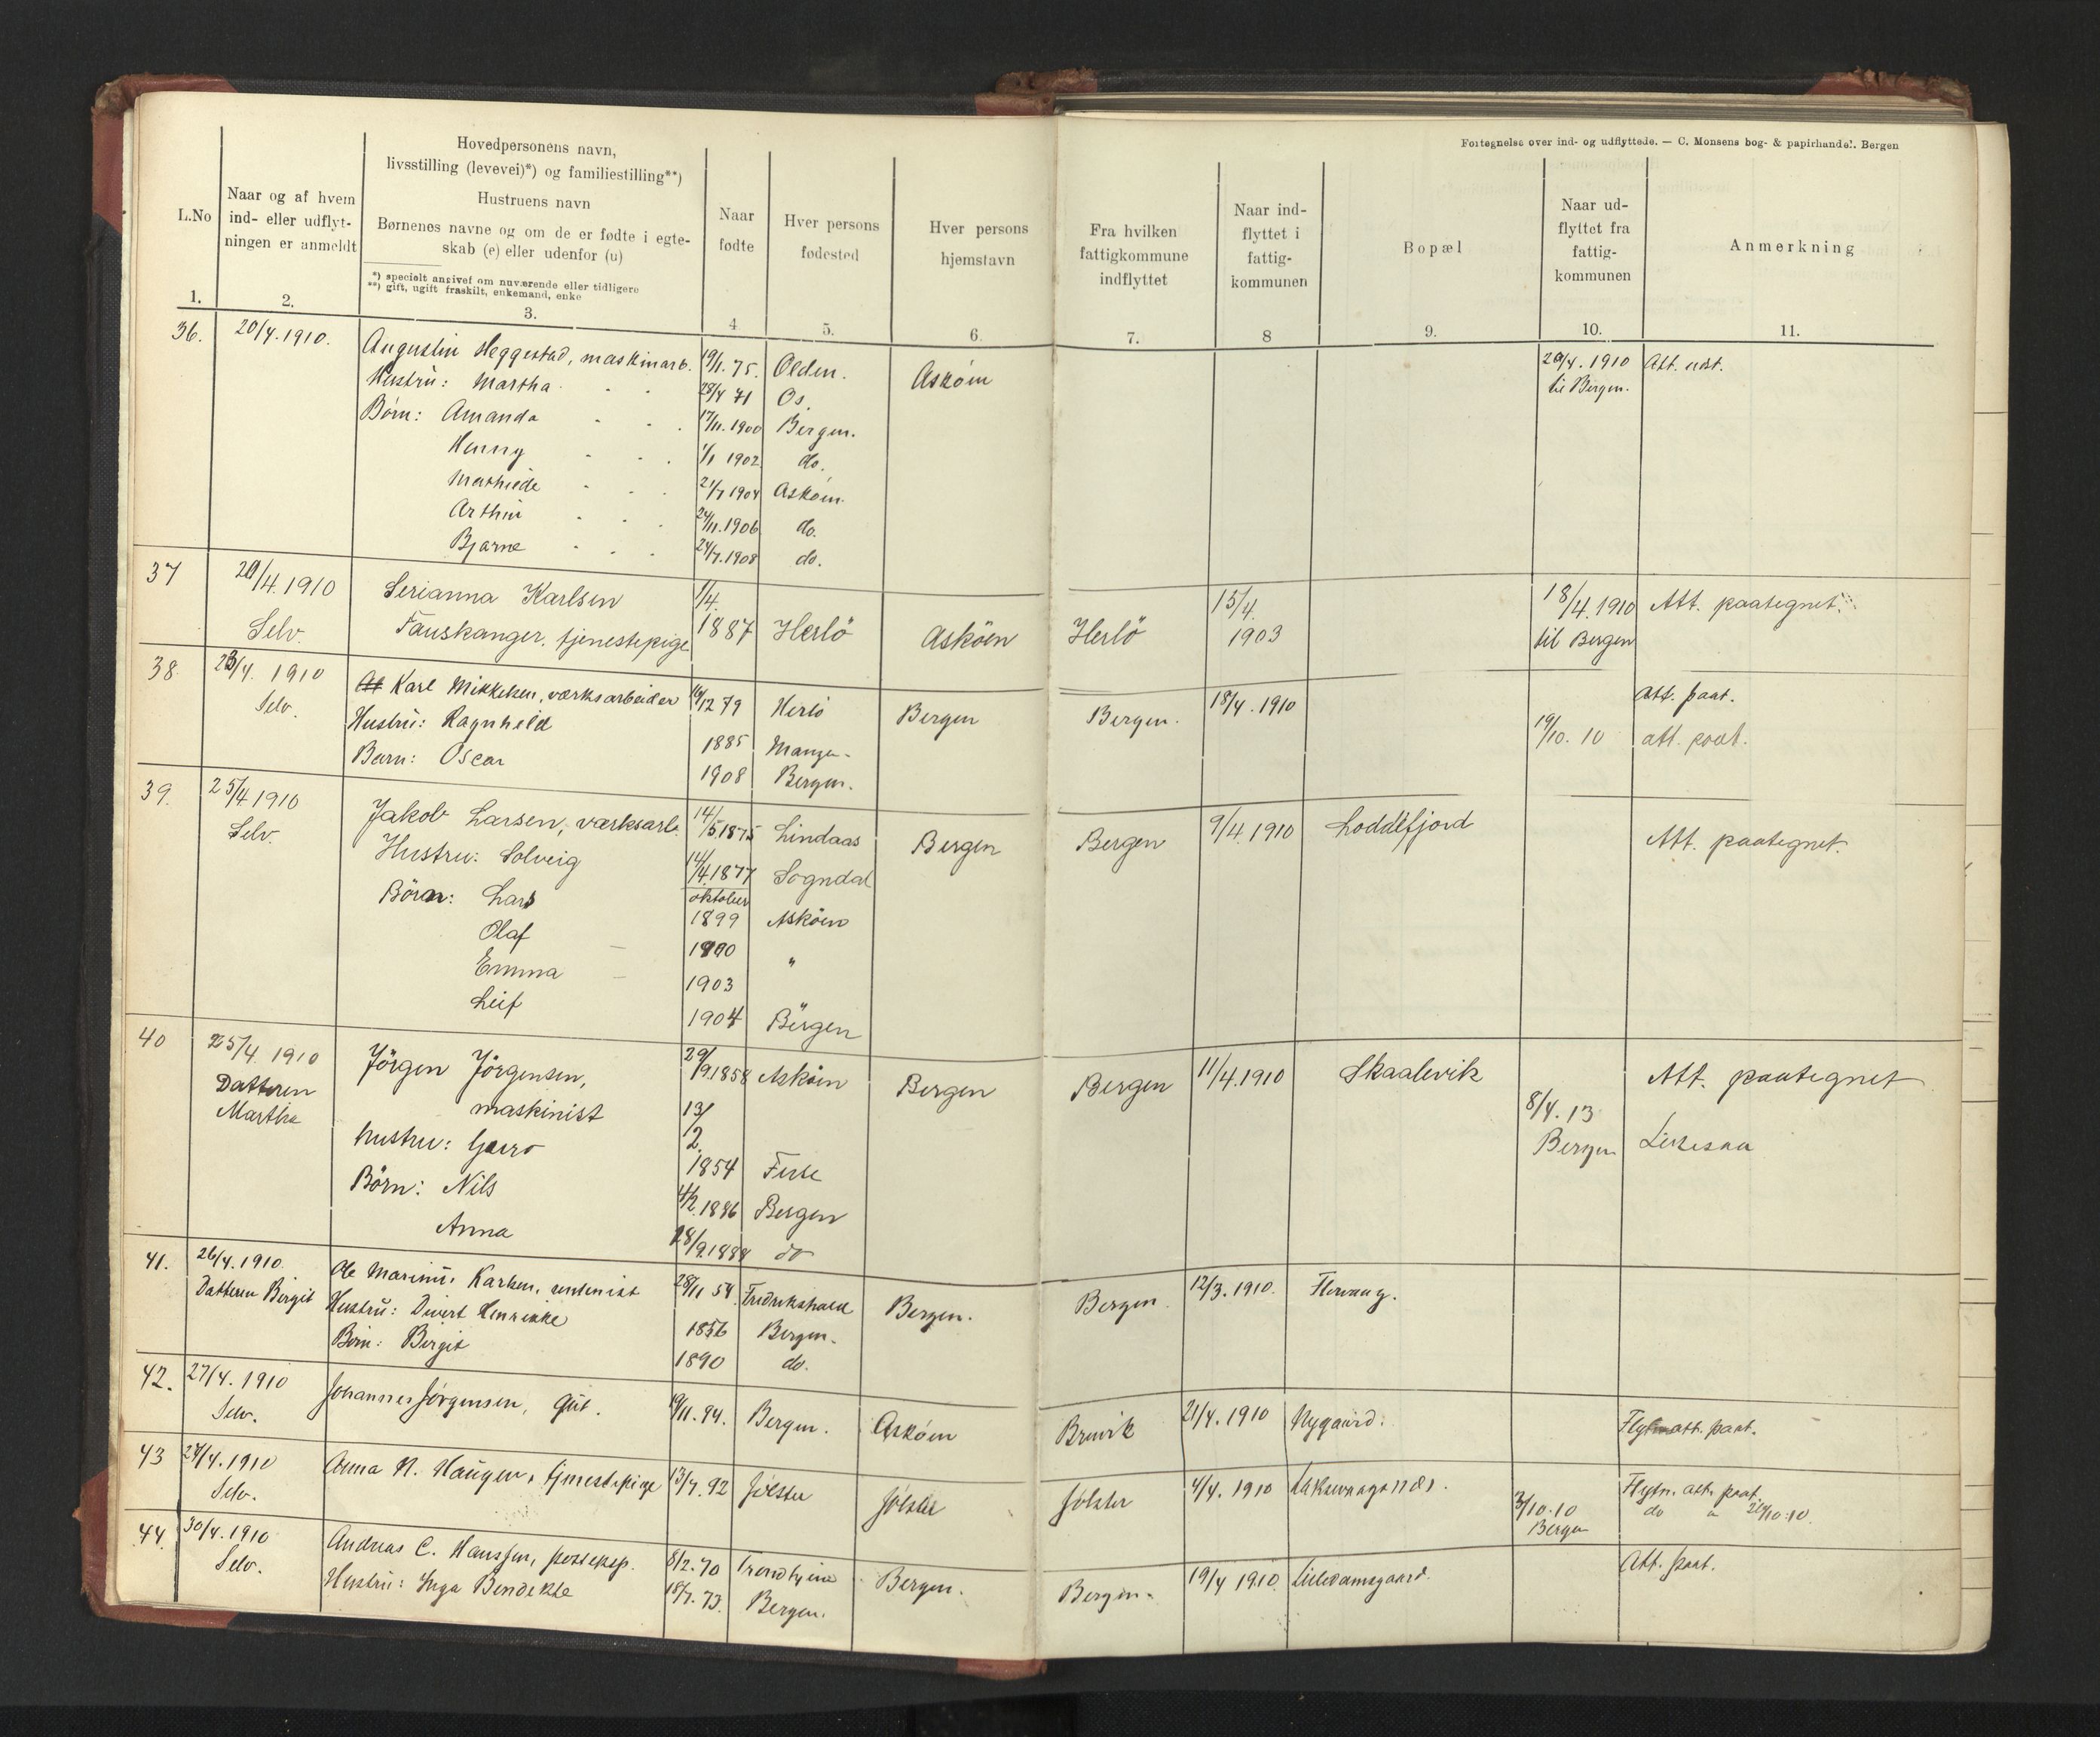 Fortegnelse over ind- og udflyttede. — C. Monsens bog- & papirhandel. Bergen
L.No
1.
Naar og af hvem
ind- eller udflyt-
ningen er anmeldt
2.
Hovedpersonens navn,
livsstilling (levevei)*) og familiestilling**)
Hustruens navn
Børnenes navne og om de er fødte i egte-
skab (e) eller udenfor (u)
*) specielt angivet om nuværende eller tidligere
**) gift, ugift fraskilt, enkemand, enke
3.
Naar
fødte
4
Hver persons
fødested
5.
Hver persons
hjemstavn
6.
Fra hvilken
fattigkommune
indflyttet
7.
Naar ind-
flyttet i
fattig-
kommunen
8
Bopæl
9.
Naar ud-
flyttet fra
fattig-
kommunen
10.
Anmerkning
11.
36. 20/4.1910. Augustin Heggestad, maskinarb. 19/1.75. Olden. Askøen 20/4.1910 Att. udst.
Hustru: Martha 28/4 71 Os. til Bergen.
Børn: Amanda 17/11.1900 Bergen.
Henny 1/1 1902 do.
Mathilde 21/7 1904 Askøen.
Arthur 24/11.1906 do.
Bjarne 24/7.1908 do.
37 20/4.1910 Serianna Karlsen 1/4. 15/4. 18/4.1910 Att. paategnet.
Selv. Fauskanger. tjenestepige 1887 Herlö Asköen Herlö 1903 til Bergen
38. 23/4. 1910 Karl Mikkelsen, værksarbeider 16/12 79 Herlö Bergen Bergen. 18/4.1910 Att. paat.
Selv. Hustru: Ragnhild 1885 Manger. 19/10.10 att. paat.
Barn: Oscar 1908 Bergen.
39. 25/4 1910 Jakob Larsen, værksarb. 14/5 1875 Lindaas Bergen Bergen 9/4.1910 Loddefjord Att. paategnet.
Selv. Hustru: Solveig 14/4.1877 Sogndal
oktober
Börn: Lars 1899 Asköen
Olaf 1900 "
Emma 1903
Leif 1904 Bergen
40 25/4. 1910 Jörgen Jörgensen, 29/9.1858 Asköen Bergen Bergen 11/4.1910 Skaalevik Att. paategnet
Datteren maskinist 13/2. 8/4.13
Martha Hustru: Guro 1854 Fuse Bergen
Börn: Nils 4/2.1886 Bergen
Anna 28/9.1888 do
41. 26/4.1910. Ole Marinius Karlsen, 28/11 54. Fredrikshald Bergen. Bergen. 12/3.1910.
Datteren Birgit Hustru: Divert Henrikke 1856 Bergen.
Børn: Birgit 1890 do.
42. 27/4.1910 Johannes Jørgensen, gut. 19/11.94. Bergen. Askøen Bruvik 21/4.1910 Nygaard. att. paat.
Selv.
43 27/4.1910 Anna N. Haugen, tjenestepige 13/7.92 Jølster Jølster Jølster 4/4.1910 Laksevaagsnæs. 3/10.10 Flytn. att. paat.
Selv. Bergen do " 20/10.10.
44. 30/4.1910 Andreas C. Hanssen, postexp. 8/2.70 Trondhjem Bergen. Bergen. 19/4 1910. Lilledamsgaard. Att. paat.
Selv. Hustru: Inga Bendikte 18/7.73. Bergen.